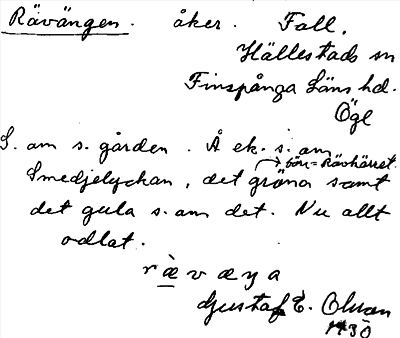 Rävängen. åker. Fall.
Hällestads sn
Finspånga Läns hd.
Ögl
S. om s. gården. Å ek. s. om
→ förr = Rävkärret.
Smedjelyckan, det gröna samt
det gula s. om det. Nu allt
odlat.
r æ̀ v æ ŋ a
Gustaf E. Olsson
1930